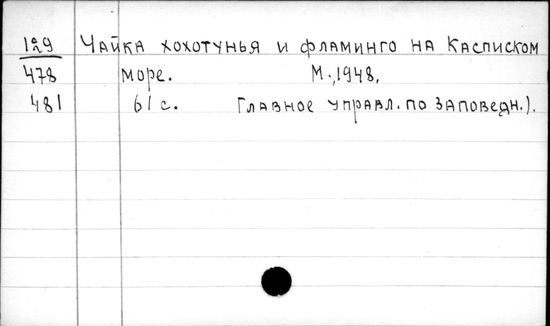 129 Чайка хохотунья и фламинго на Касписком
478 море. М., 1948.
481 61 с. Главное управл. по заповедн.).